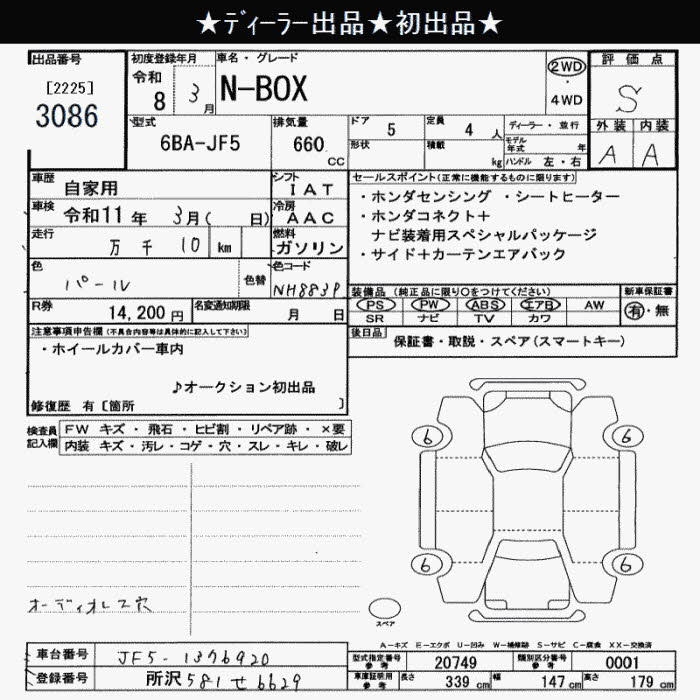 ★ディーラー出品★初出品★
出品番号
[2225]
3086
初度登録年月
令和
8 3月
車名・グレード
N-BOX
2WD
・
4WD
評価点
S
外装 内装
A A
型式
6BA-JF5
排気量
660
CC
ドア 5
定員 4 人
形状
積載 kg
ディーラー・並行
モデル年式 年
ハンドル 左・右
車歴 自家用
シフト IAT
車検 令和11年 3月( 日)
冷房 AAC
走行 万 千 10 km
燃料 ガソリン
色 パール
色替
色コード NH883P
R券 14,200円
名変通知期限 月 日
セールスポイント(正常に機能するものに限ります)
・ホンダセンシング ・シートヒーター
・ホンダコネクト+
ナビ装着用スペシャルパッケージ
・サイド+カーテンエアバック
装備品(純正品に限り〇をつけてください)
PS PW ABS エアB AW
SR ナビ TV カワ
新車保証書
有・無
後日品 保証書・取説・スペア(スマートキー)
注意事項申告欄(不具合内容等は具体的に記入して下さい)
・ホイールカバー車内
♪オークション初出品
修復歴 有〔箇所 〕
検査員記入欄
FW キズ・飛石・ヒビ割・リペア跡・×要
内装 キズ・汚レ・コゲ・穴・スレ・キレ・破レ
6 6
6 6
オーディオレス穴
スペア
A−キズ E−エクボ U−凹み W−補修跡 S−サビ C−腐食 XX−交換済
車台番号 JF5-1376920
登録番号 所沢581せ6629
型式指定番号参考 20749
類別区分番号参考 0001
車庫証明用参考 長さ 339cm 幅 147cm 高さ 179cm